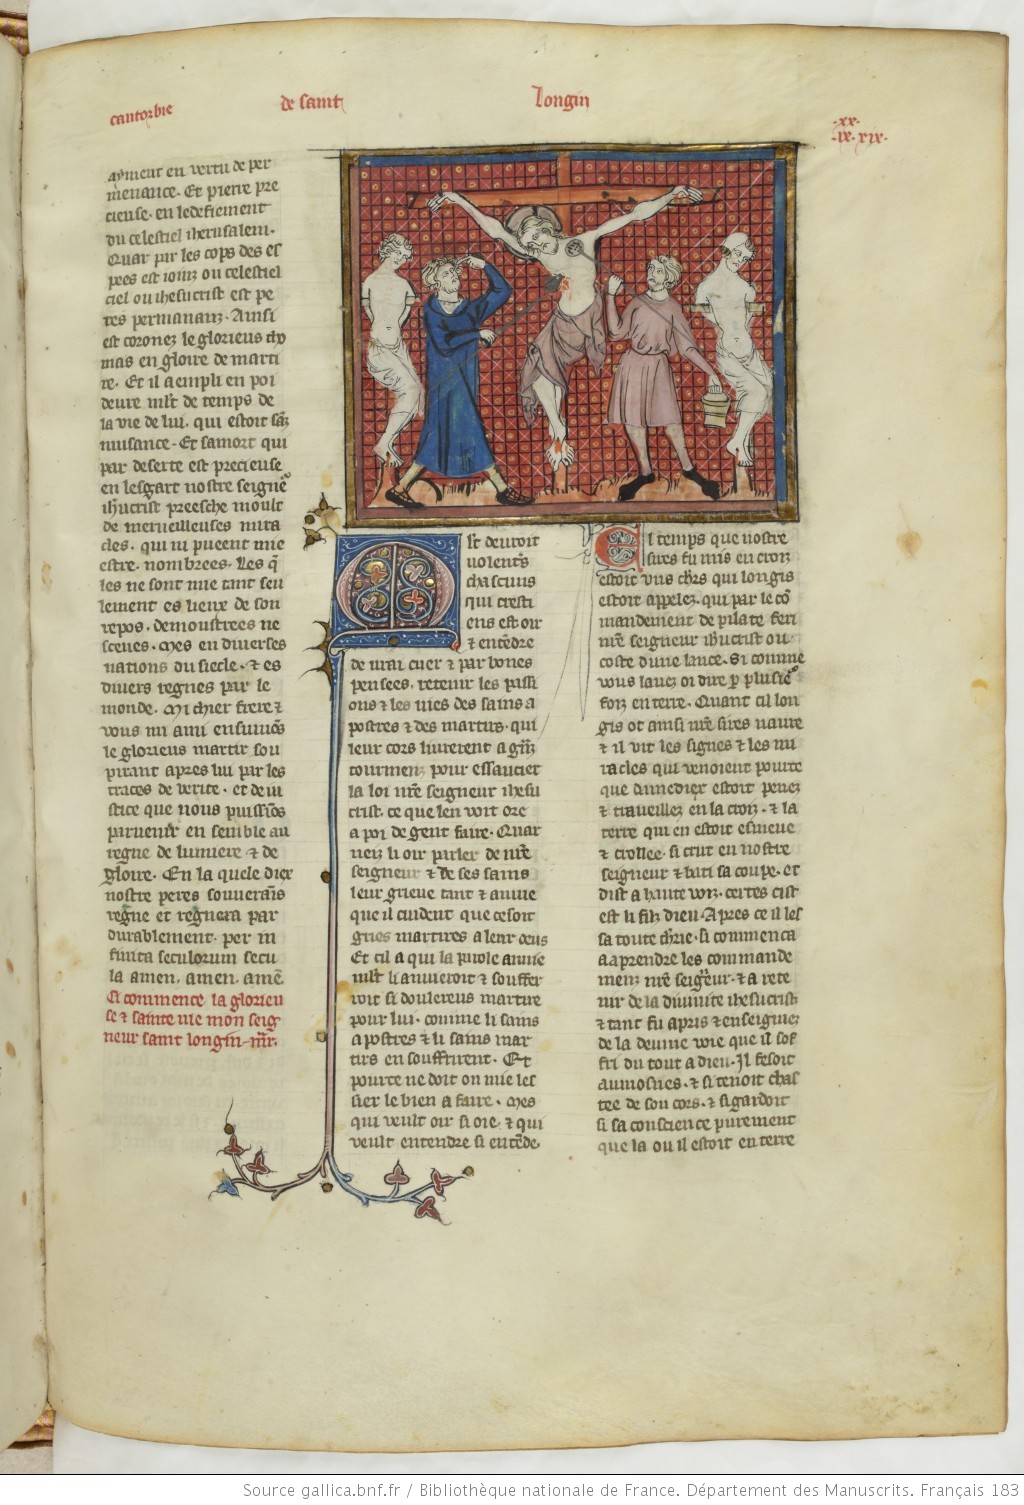 cantorbie
de saint
longin
.xx.
.ix. xix.
aiment en vertu de per
menance. Et pierre pre
cieuse. en ledefiement
du celestiel iherusalem.
Quar par les cops des es
pees est ioinz ou celestiel
ciel ou ihesucrist est pe
res permananz. Ainsi
est coronez le glorieus tho
mas en gloire de marti
re. Et il aempli en poi
deure mlt de temps de
la vie de lui. qui estoit sãz
nuisance. Et samort qui
par deserte est precieuse
en lesgart nostre seignẽ
ihucrist preesche moult
de merueilleuses mira
cles. qui ni pueent mie
estre. nombrees. Les q̃
les ne sont mie tant seu
lement es lieux de son
repos. demoustrees ne
scenes. Mes en diuerses
nations du siecle. ⁊ es
diuers regnes par le
monde. Mi chier frere ⁊
vous mi ami ensuiuõs
le glorieus martir sou
pirant apres lui par les
traces de verite. et de iu
stice que nous puissiõs
paruenir en semble au
regne de lumiere ⁊ de
gloire. En la quele diex
nostre peres souuerains
regne et regnera par
durablement. per in
finita seculorum secu
la amen. amen. amẽ.
Ci commence la glorieu
se ⁊ sainte uie mon seig
neur saint longin mr̃.
Mlt deuroit
uolentrs
chascuns
qui cresti
ens est oir
⁊ entẽdre
de urai cuer ⁊ par bones
pensees. retenir les passi
ons ⁊ les uies des sains a
postres ⁊ des martirs. qui
leur cors liurerent a gr̃nz
tourmenz pour essaucier
la loi nr̃e seigneur ihesu
crist. ce que len voit ore
a poi de gent faire. Quar
neis li oir parler de nr̃e
seigneur ⁊ de ses sains
leur grieue tant ⁊ anuie
que il cuident que ce soit
gries martires a leur oeus
Et cil a qui la parole anuie
mlt li anuieroit ⁊ souffer
roit si doulereus martire
pour lui. comme li sains
apostres ⁊ li sains mar
tirs en souffrirent. Et
pource ne doit on mie les
sier le bien a faire. Mes
qui veult oir si oie. ⁊ qui
veult entendre si entẽde.
El temps que nostre
sires fu mis en croiz
estoit vns chrs qui longis
estoit appelez. qui par le cõ
mandement de pilate feri
nr̃e seigneur ihucrist ou
coste dune lance. Si comme
vous lauez oi dire p plusie
foiz en terre. Quant cil lon
gis ot ainsi nr̃e sires naure
⁊ il vit les signes ⁊ les mi
racles qui venoient pource
que damediex estoit penez
⁊ traueillez en la croiz. ⁊ la
terre qui en estoit esmeue
⁊ crollee. si crut en nostre
seigneur ⁊ bati sa coupe. et
dist a haute voiz. certes cist
est li filz dieu. Apres ce il les
sa toute chr̃ie. si commenca
a aprendre les commande
menz nr̃e seigneur. ⁊ a rete
nir de la diuinite ihesucrist
⁊ tant fu apris ⁊ enseigniez
de la deuine uoie que il sof
fri du tout a dieu. Il fesoit
aumosnes. ⁊ si tenoit chas
tee de son cors. ⁊ si gardoit
si sa conscience purement
que la ou il estoit en terre
Source gallica.bnf.fr / Bibliothèque nationale de France. Département des Manuscrits. Français 183